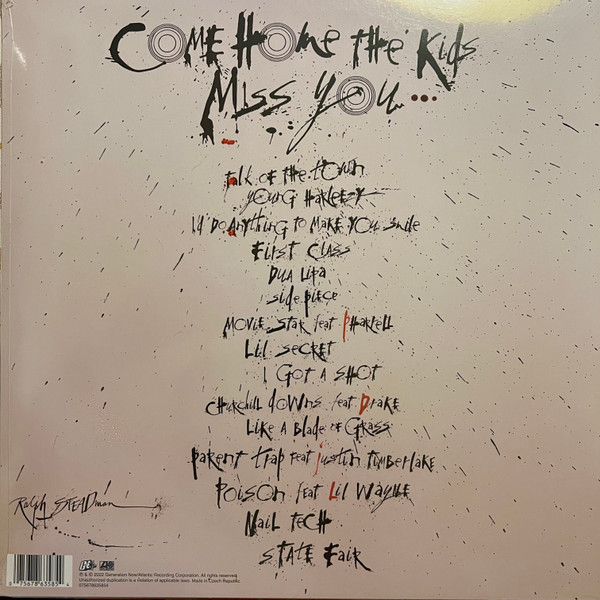 Come Home the Kids
Miss You...
talk of the town
young Harleezy
I'd Do Anything to Make You Smile
First Class
Dua Lipa
side piece
Movie star feat Pharrell
Lil secret
I Got A SHOT
Churchill downs feat Drake
Like A Blade of Grass
parent trap feat justin timberlake
Poison feat Lil Wayne
Nail tech
STATE Fair
Ralph STEADman
℗ & © 2022 Generation Now/Atlantic Recording Corporation. All rights reserved.
Unauthorized duplication is a violation of applicable laws. Made in Czech Republic.
075678635854
0 75678 63585 4